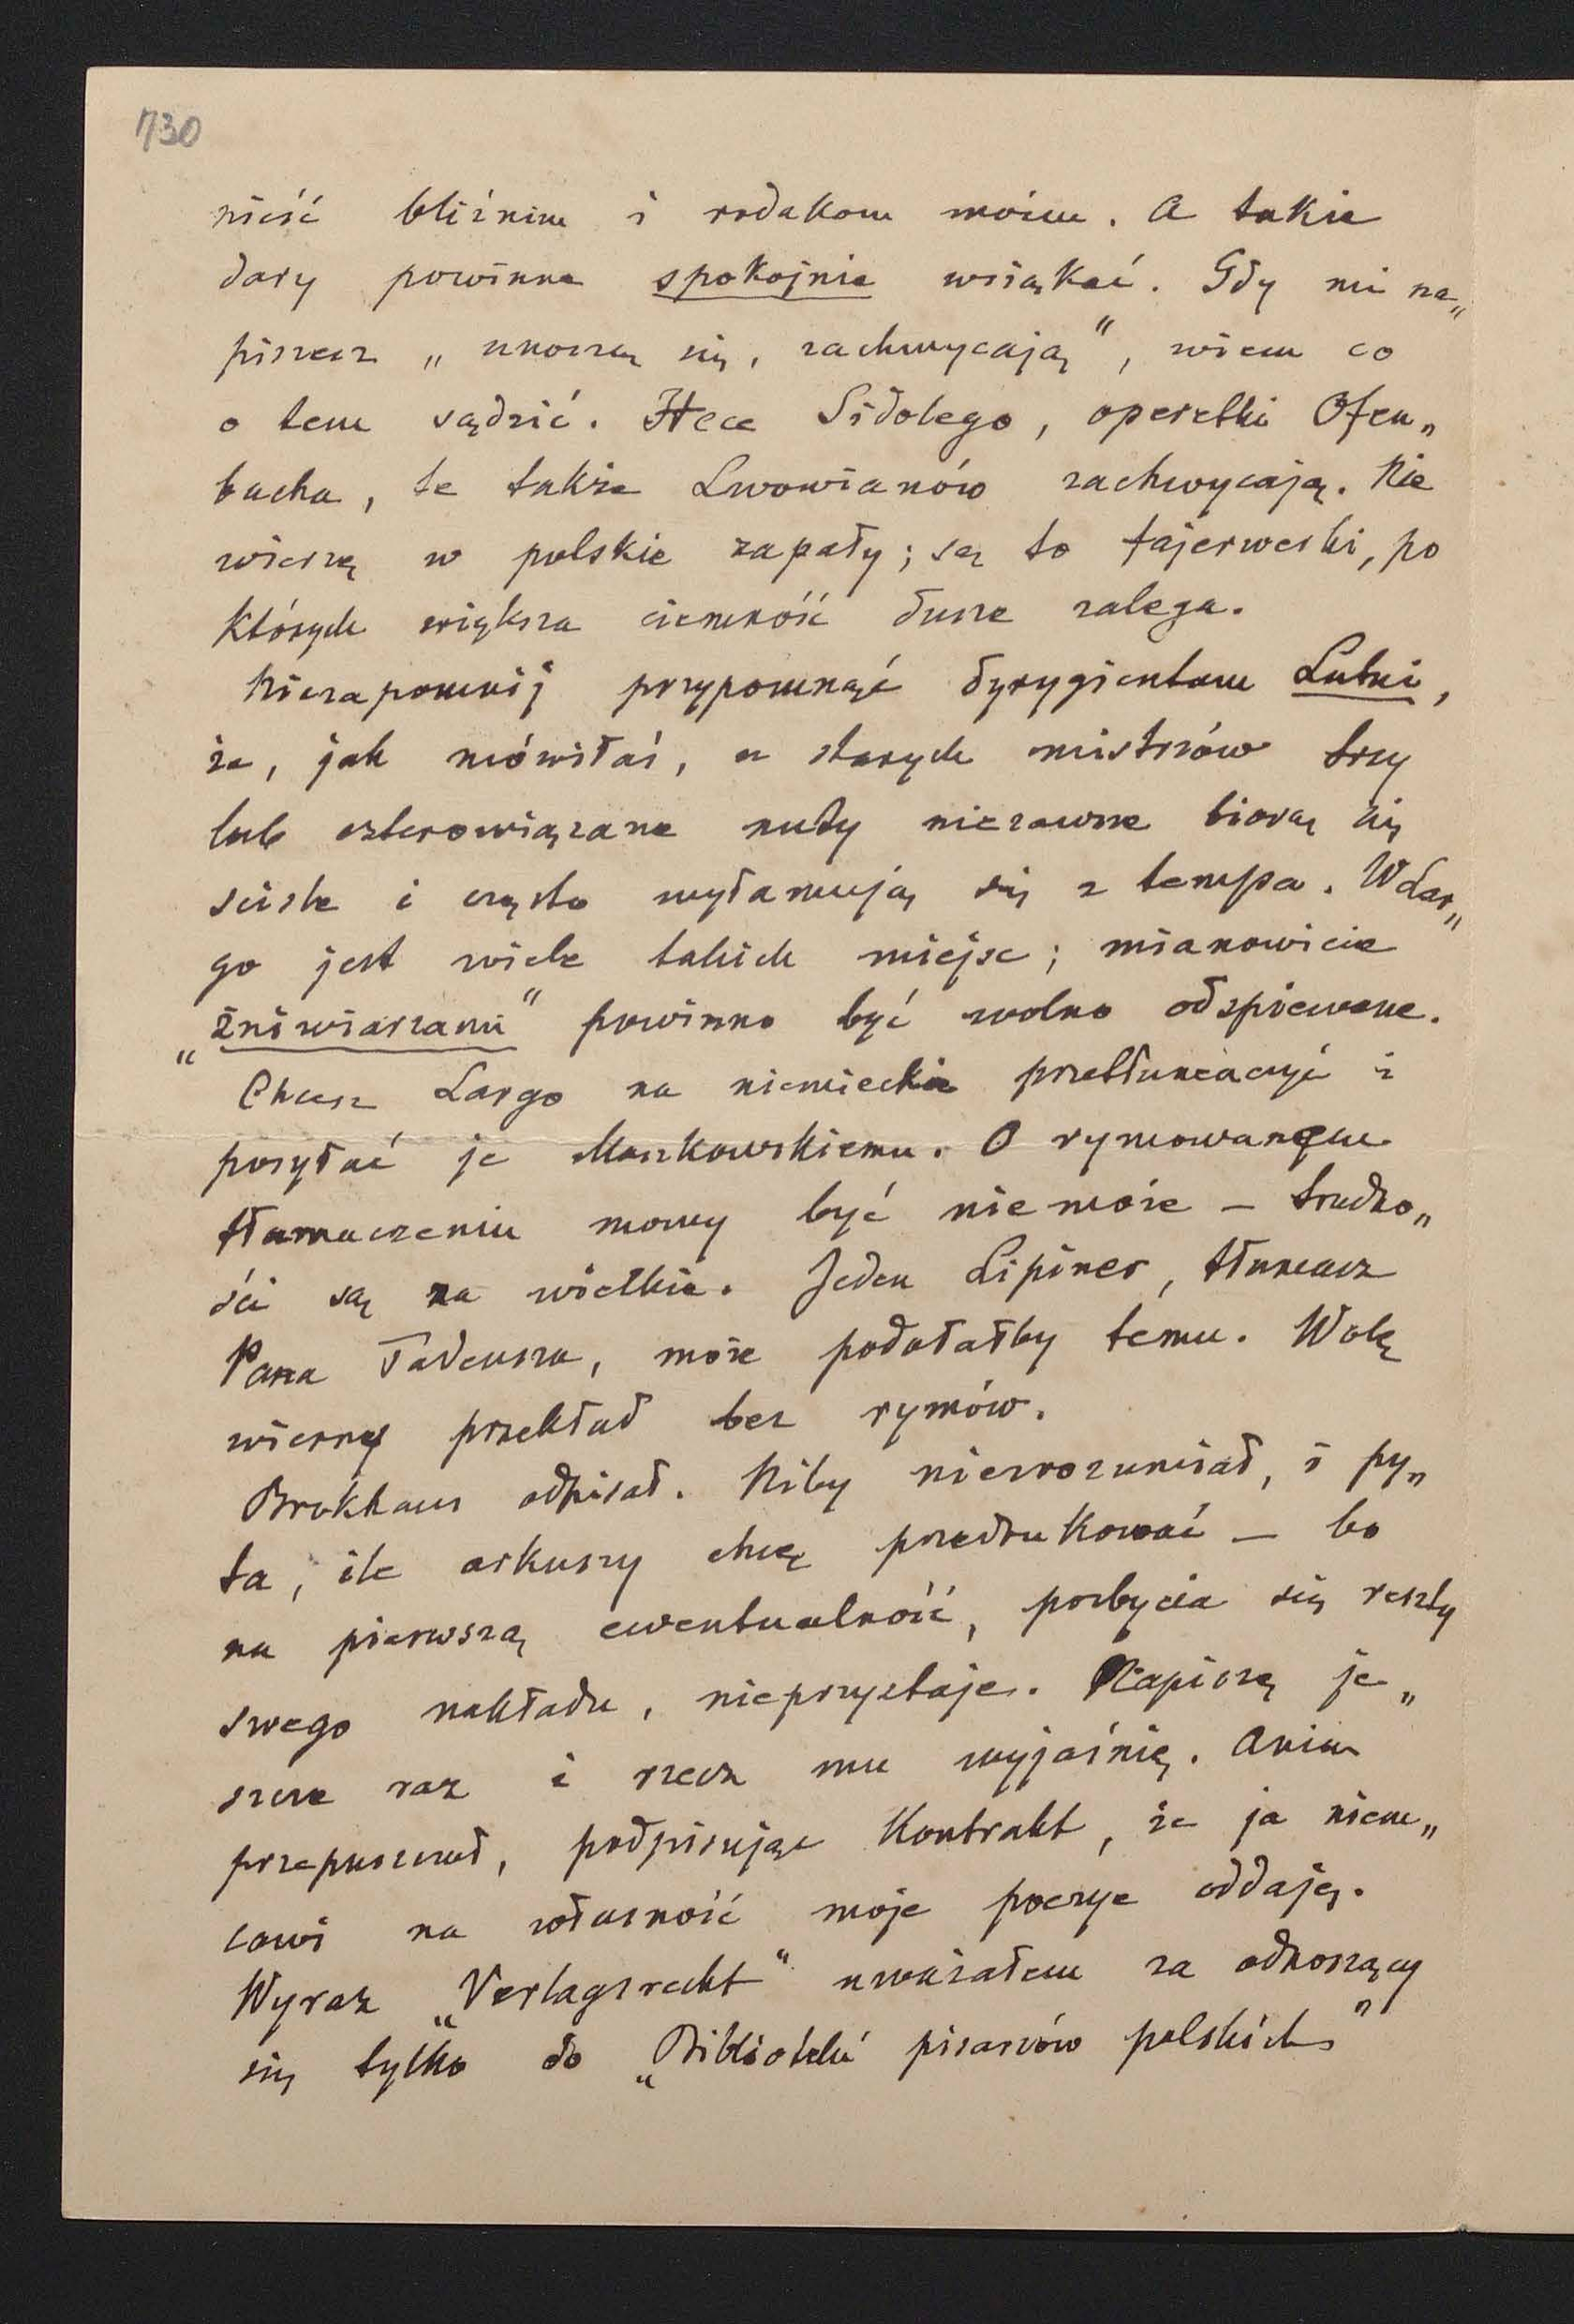 730
nieść bliźnim i rodakom moim. A takie
dary powinne spokojnie wsiąkać. Gdy mi na„
piszesz „unoszą się, zachwycają", wiem co
o tem sądzić. Hece Sidolego, operetki Ofen„
bacha, te także Lwowianów zachwycają. Nie
wierzę w polskie zapały; są to fajerwerki, po
których większa ciemność dusze zalega.
Niezapomnij przypomnąć dyrygientom Lutni,
że, jak mówiłaś, u starych mistrzów trzy
lub czterowiązane nuty niezawsze biorą się
sciśle i często wyłamują się z tempa. W Lar„
go jest wiele takich miejsc; mianowicie
„żniwiarzami" powinno być wolno odspiewane.
Chcesz Largo na niemieckie przetłumaczyć i
posyłać je Moszkowskiemu. O rymowanem
tłumaczeniu mowy być niemoże – trudno„
ści są za wielkie. Jeden Lipiner, tłumacz
Pana Tadeusza, może podołałby temu. Wolę
wierny przekład bez rymów.
Brokhaus odpisał. Niby niezrozumiał, i py„
ta, ile arkuszy chcę przedrukować – bo
na pierwszą ewentualność, pozbycia się reszty
swego nakładu, nieprzystaje. Napiszę je„
szcze raz i rzecz mu wyjaśnię. Anim
przepuszczał, podpisując Kontrakt, że ja niem„
cowi na własność moje poezye oddaję.
Wyraz „Verlagsrecht" uważałem za odnoszący
się tylko do „Biblioteki pisarzów polskich"